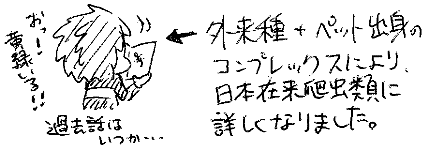 おっ!
黄緑いる!!
← 外来種+ペット出身の
コンプレックスにより、
日本在来爬虫類に
詳しくなりました。
過去話は
いつか…